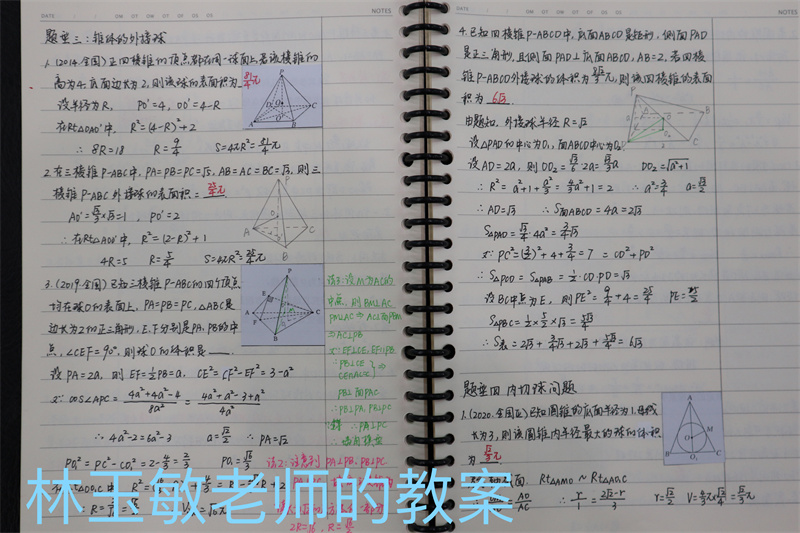 DATE
NOTES
题型三:锥体的外接球
1.(2014.全国)正四棱锥的顶点都在同一球面上,若该棱锥的
高为4,底面边长为2,则该球的表面积为 81/4π
设半径为R, PO'=4, OO'=4-R
在Rt△OAO'中, R²=(4-R)²+2
∴ 8R=18 R=9/4 S=4πR²=81/4π
2.在三棱锥P-ABC中, PA=PB=PC=√5, AB=AC=BC=√3, 则三
棱锥P-ABC外接球的表面积=25/4π
AO'=√3/3×√3=1, PO'=2
∴在Rt△AOO'中, R²=(2-R)²+1
4R=5 R=5/4 S=4πR²=25/4π
3.(2019.全国)已知三棱锥P-ABC的四个顶点
均在球O的表面上, PA=PB=PC, △ABC是
边长为2的正三角形, E,F分别是PA,PB的中
点, ∠CEF=90°, 则球O的体积是
设PA=2a, 则 EF=½PB=a, CE²=CF²-EF²=3-a²
又∵ cos∠APC = (4a²+4a²-4)/8a² = (4a²+a²-3+a²)/4a²
∴ 4a²-2=6a²-3 a=√2/2 ∴ PA=√2
PO₁²=PC²-CO₁²=2-4/3=2/3 PO₁=√6/3
法1:设M为AC的
中点, 则 BM⊥AC
PM⊥AC ⇒ AC⊥面PBM
⇒AC⊥PB
又∵EF⊥CE, EF∥PB
∴PB⊥CE
⇒
PB⊥面PAC
∴PB⊥PA, PB⊥PC
∴PA⊥PC
法2:注意到 PA⊥PB, PB⊥PC
NOTES
4.已知四棱锥P-ABCD中,底面ABCD是矩形,侧面PAD
是正三角形,且侧面PAD⊥底面ABCD, AB=2, 若四棱
锥P-ABCD外接球的体积为 8√2/3π, 则该四棱锥的表面
积为 6√3
由题知,外接球半径 R=√2
设△PAD的中心为O₁,面ABCD中心为O₂
设AD=2a, 则 OO₂=√3/6·2a=√3/3a DO₂=√(a²+1)
∴ R²=a²+1+a²/3=4/3a²+1=2 ∴ a²=3/4 a=√3/2
∴AD=√3 ∴ S面ABCD=4a=2√3
S△PAD=√3/4·4a²=3/4√3
又∵PC²=(3/2)²+4+3/4=7 = CD²+PD²
∴ S△PCD=S△PAB=½·CD·PD=√3
设BC中点为E, 则PE²=9/4+4=25/4 PE=5/2
S△PBC=½×5/2×√3=5√3/4
∴ S表=2√3+3/4√3+2√3+5√3/4=6√3
题型四 内切球问题
1.(2020.全国Ⅲ)已知圆锥的底面半径为1,母线
长为3,则该圆锥内半径最大的球的体积
为 √2/3π
Rt△AMO ∽ Rt△AO₁C
∴ r/1=(2√2-r)/3 r=√2/2 V=4/3π×√2/4=√2/3π
林玉敏老师的教案